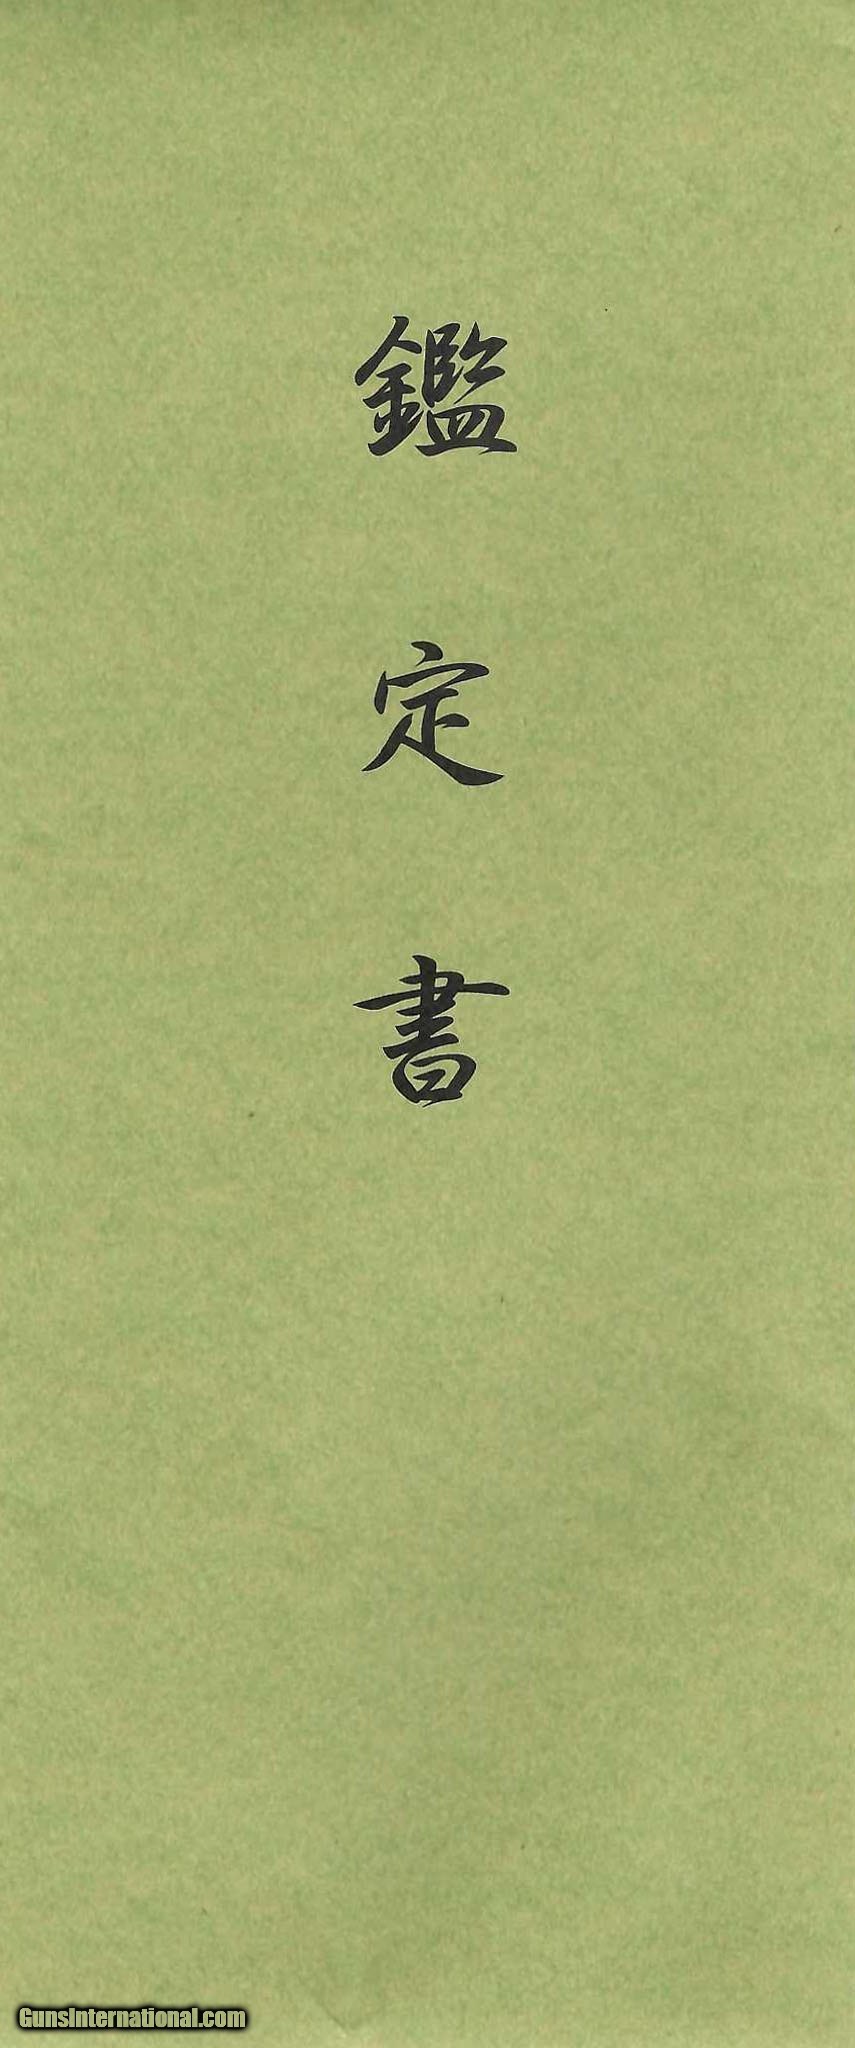 鑑定書
GunsInternational.com